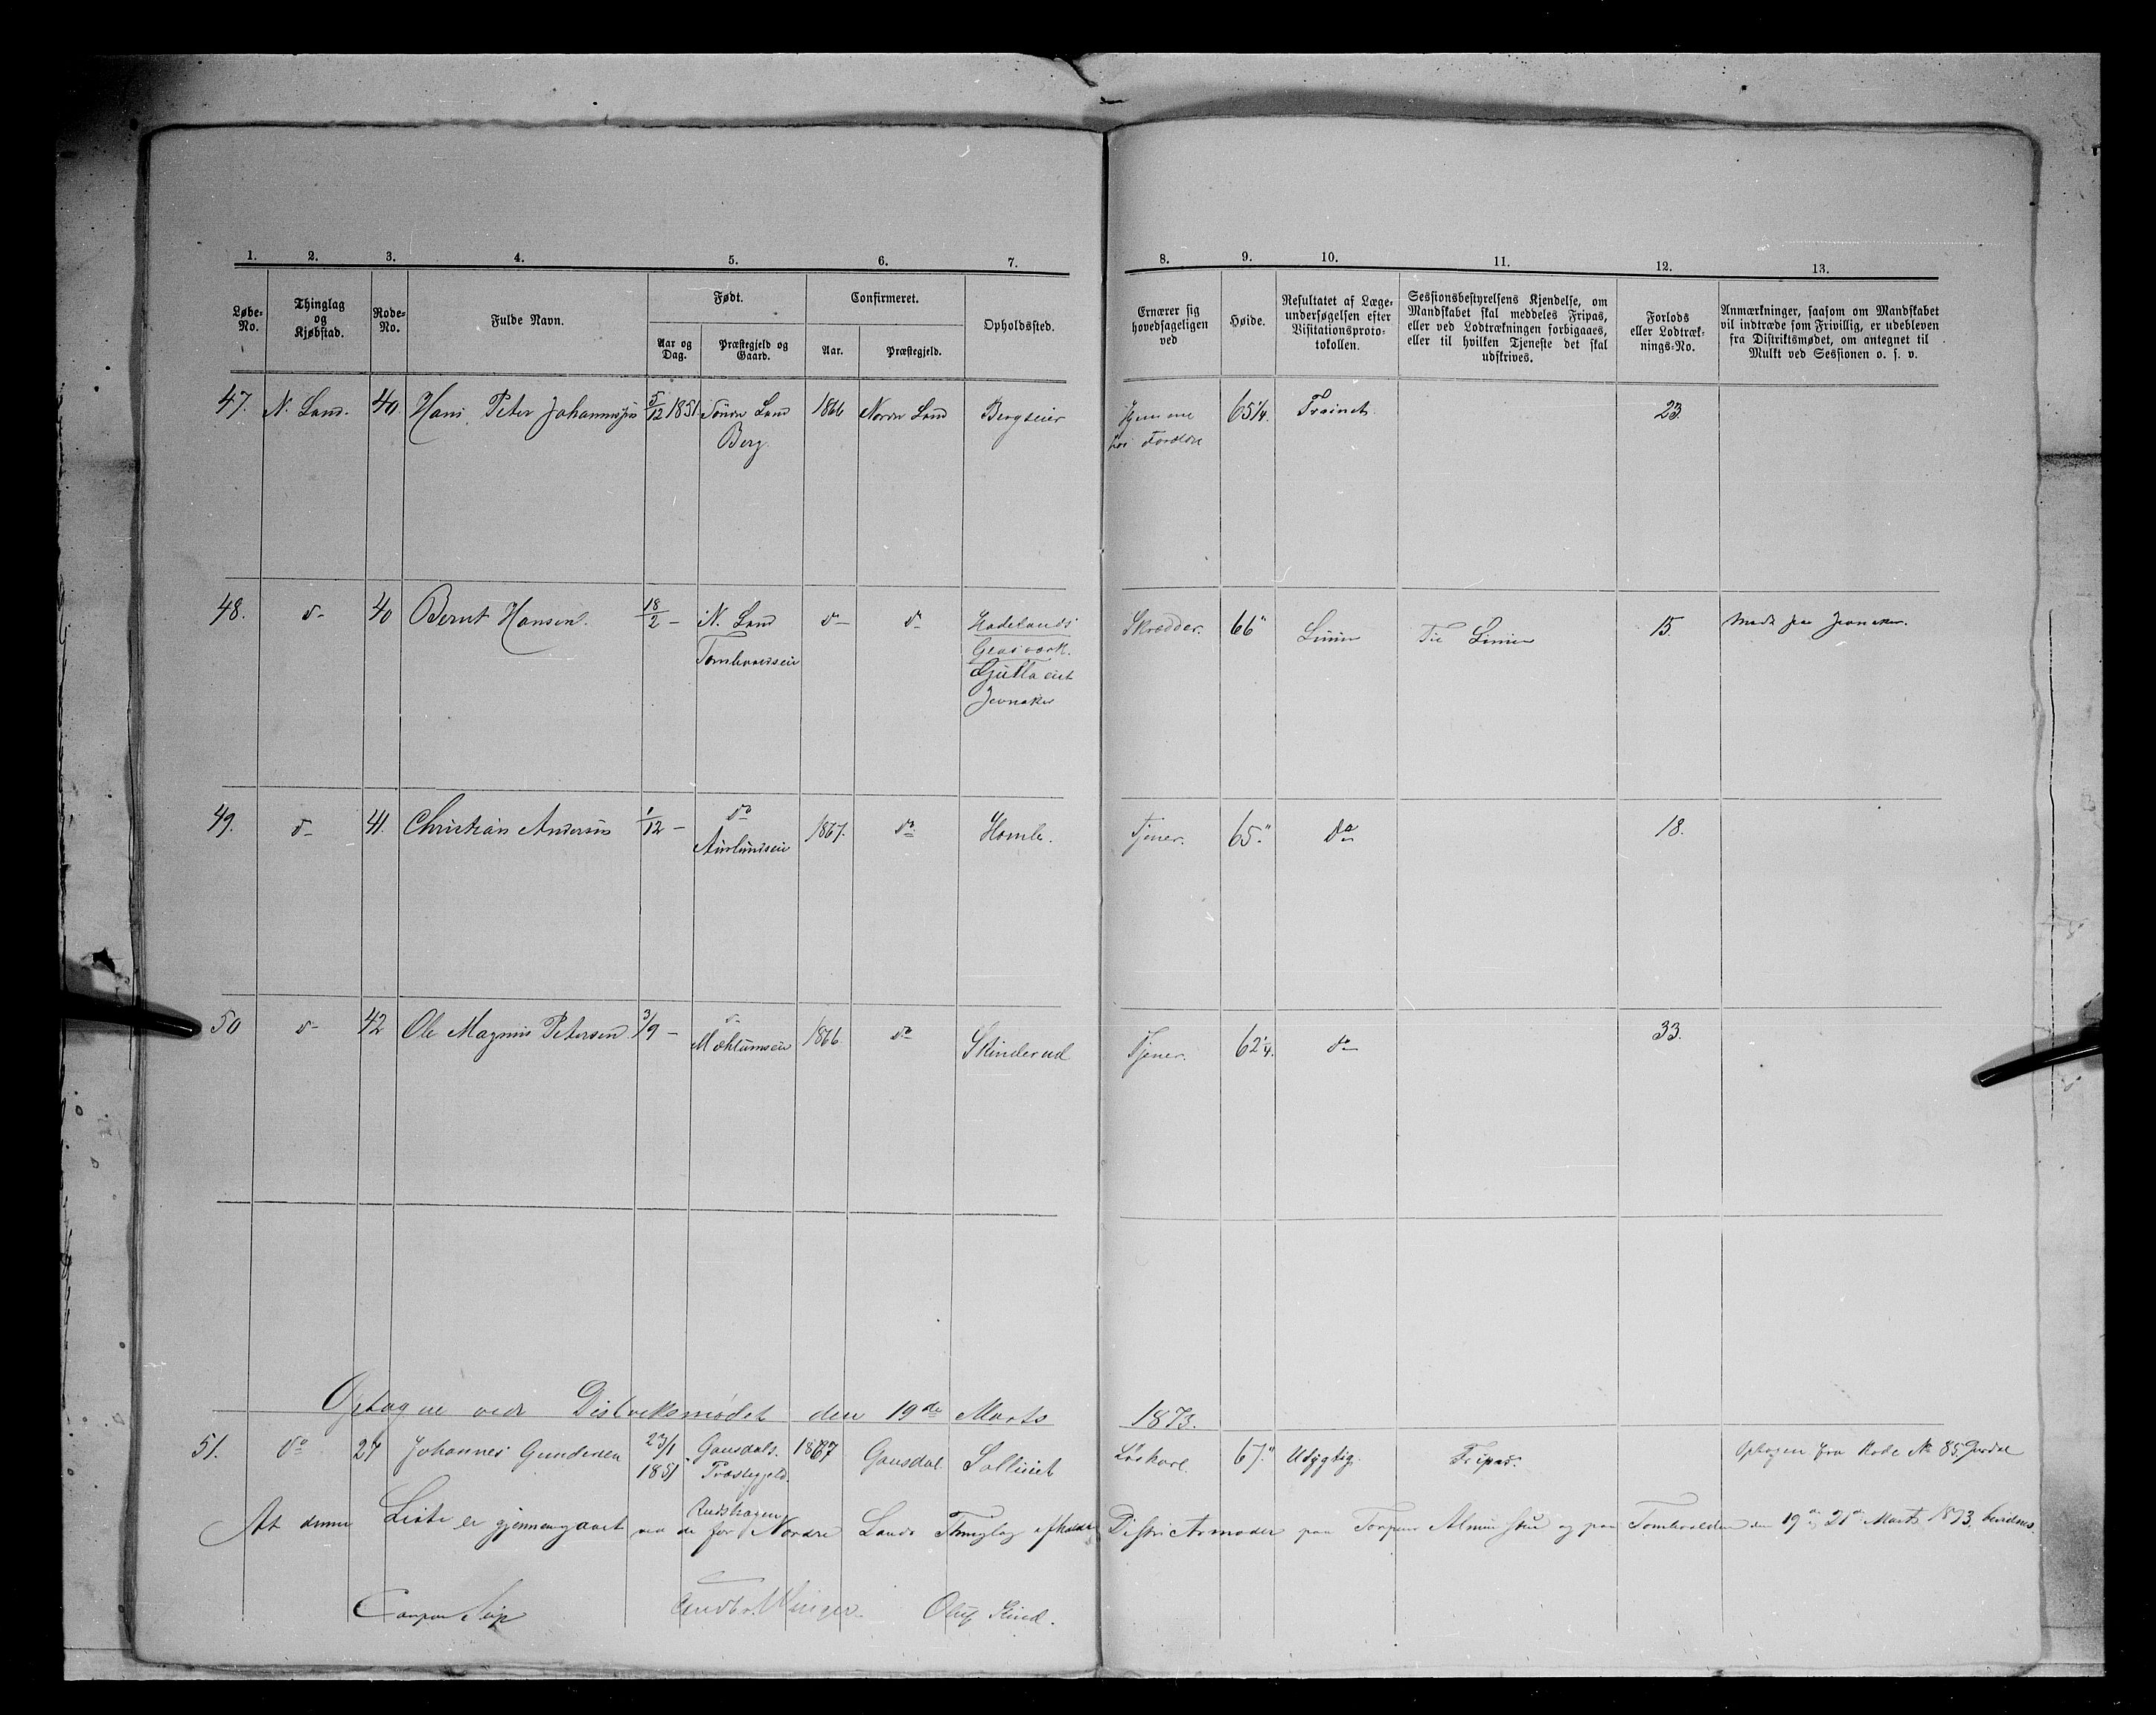 1. 2. 3. 4. 5. 6. 7. 8. 9. 10. 11. 12. 13.
Løbe-No.
Thinglag og Kjøbstad.
Rode-No.
Fulde Navn.
Født.
Aar og Dag.
Præstegjeld og Gaard.
Confirmeret.
Aar.
Præstegjeld.
Opholdssted.
Ernærer sig hovedsageligen ved
Høide.
Resultatet af Læge-undersøgelsen efter Visitationsproto-tokollen.
Sessionsbestyrelsens Kjendelse, om Mandskabet skal meddeles Fripas, eller ved Lodtrækningen forbigaaes, eller til hvilken Tjeneste det skal udskrives.
Forlods eller Lodtræk-nings-No.
Anmærkninger, saasom om Mandskabet vil indtræde som Frivillig, er udebleven fra Distriktsmødet, om antegnet til Mulkt ved Sessionen o. s. v.
47. N. Land. 40. Hans Peter Johannessen 5/12 1851 Søndr Land 1866 Nordr Land Bergseier Hjemme 65 1/4. Trainet 23.
Berg hos Forældre
48. do 40 Bernt Hansen. 18/2 - N. Land do do Hadelands Skrædder. 66" Linien Til Linien 15. Mødt paa Jevnaker.
Tomlevoldseie Glasværk.
Jevnaker
49. do 41. Christian Andersen 1/12 - do 1867. do Homle. Tjener. 65." do 18.
50 do 42 Ole Magnus Petersen 3/9 - do 1866 do Skinderud Tjener. 62 1/4. do 33.
Optagne ved Distriksmødet den 19de Marts 1873.
51. do 27 Johannes Gundersen 23/1 1851 Gausdals 1867 Gausdal Sollinet Løskarl. 67." Udygtig. Fripas. Optagen fra Rode No 85
Præstegjeld.
At denne Liste er gjennemgaaet ved de for Nordre Lands Thinglag afholdte Districtsmøder paa Torpens Almenskov og paa Tomlevolden den 19de, 21de Marts 1873, bevidnes.